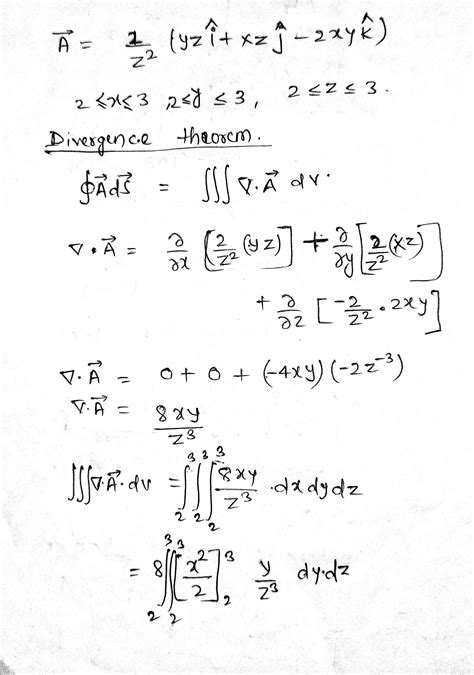 A⃗ = 2/z² (yz î + xz ĵ - 2xy k̂)
2 ≤ x ≤ 3, 2 ≤ y ≤ 3, 2 ≤ z ≤ 3.
Divergence theorem.
∮A⃗ dS⃗ = ∭ ∇·A⃗ dv.
∇·A⃗ = ∂/∂x [2/z² (yz)] + ∂/∂y [2/z² (xz)]
+ ∂/∂z [-2/z² · 2xy]
∇·A⃗ = 0 + 0 + (-4xy)(-2z⁻³)
∇·A⃗ = 8xy/z³
∭∇·A⃗·dv = ∫₂³∫₂³∫₂³ 8xy/z³ ·dxdydz
= 8∫₂³∫₂³ [x²/2]₂³ y/z³ dy·dz